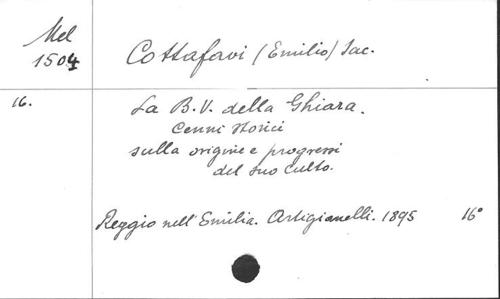 Mel
1504
Cottafavi (Emilio) Sac.
16.
La B. V. della Ghiara.
Cenni storici
sulla origine e progressi
del suo Culto.
Reggio nell'Emilia. Artigianelli. 1895 16°